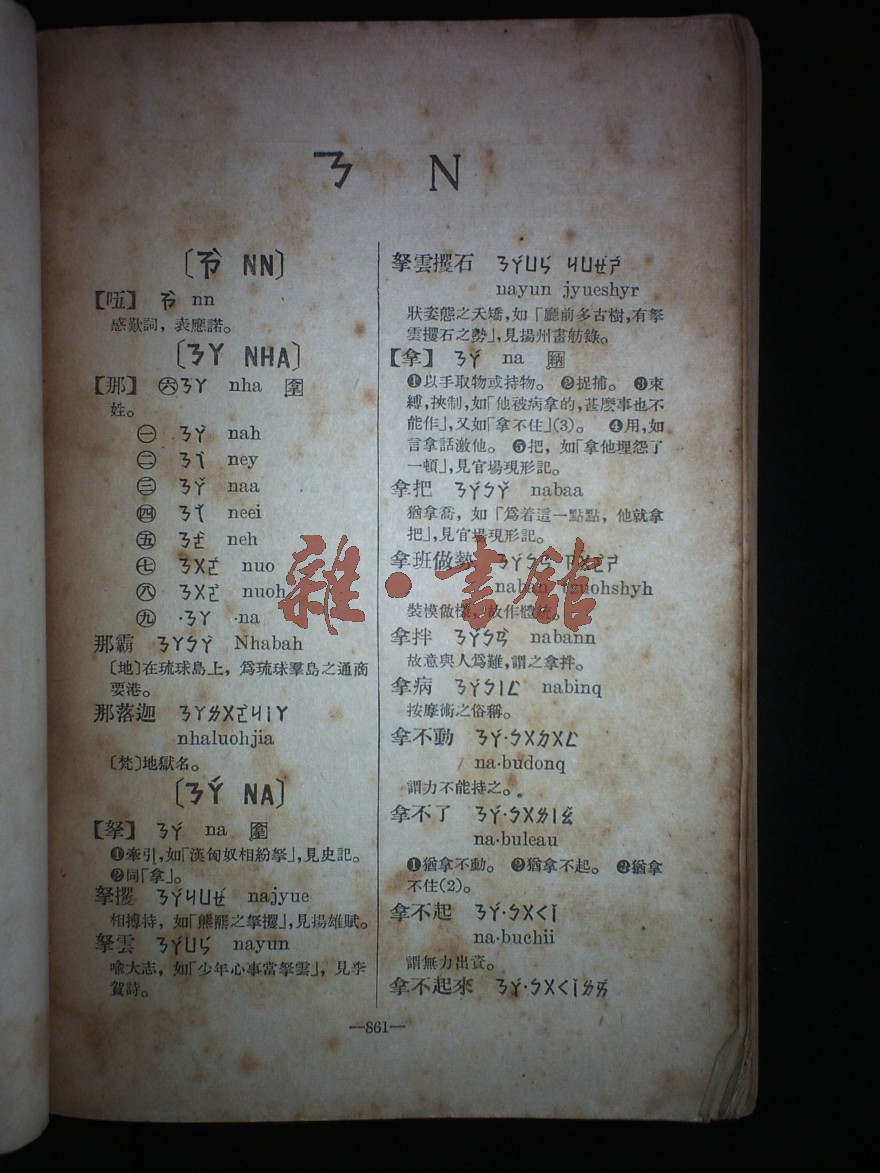 ㄋ N
〔ㄋ̀ NN〕
【㕶】 ㄋ̀ nn
感歎詞，表應諾。
〔ㄋㄚ NHA〕
【那】 ㊅ㄋㄚ nha
姓。
㊀ ㄋㄚˋ nah
㊁ ㄋㄟˋ ney
㊂ ㄋㄚˇ naa
㊃ ㄋㄟˇ neei
㊄ ㄋㄜˋ neh
㊆ ㄋㄨㄛˊ nuo
㊇ ㄋㄨㄛˋ nuoh
㊈ ·ㄋㄚ ·na
那霸 ㄋㄚㄅㄚˋ Nhabah
〔地〕在琉球島上，爲琉球羣島之通商
要港。
那落迦 ㄋㄚㄌㄨㄛˋㄐㄧㄚ
nhaluohjia
〔梵〕地獄名。
〔ㄋㄚˊ NA〕
【拏】 ㄋㄚˊ na
❶牽引，如「漢匈奴相紛拏」，見史記。
❷同「拿」。
拏攫 ㄋㄚˊㄐㄩㄝˊ najyue
相搏持，如「熊羆之拏攫」，見揚雄賦。
拏雲 ㄋㄚˊㄩㄣˊ nayun
喩大志，如「少年心事當拏雲」，見李
賀詩。
拏雲攫石 ㄋㄚˊㄩㄣˊ ㄐㄩㄝˊㄕˊ
nayun jyueshyr
狀姿態之夭矯，如「廳前多古樹，有拏
雲攫石之勢」，見揚州畫舫錄。
【拿】 ㄋㄚˊ na
❶以手取物或持物。 ❷捉捕。 ❸束
縛，挾制，如「他被病拿的，甚麽事也不
能作」，又如「拿不住」(3)。 ❹用，如
言拿話激他。 ❺把，如「拿他埋怨了
一頓」，見官場現形記。
拿把 ㄋㄚˊㄅㄚˇ nabaa
猶拿喬，如「爲着這一點點，他就拿
把」，見官場現形記。
拿班做勢 ㄋㄚˊㄅㄢ ㄗㄨㄛˋㄕˋ
naban tzuohshyh
裝模做樣，故作體統。
拿拌 ㄋㄚˊㄅㄢˋ nabann
故意與人爲難，謂之拿拌。
拿病 ㄋㄚˊㄅㄧㄥˋ nabinq
按摩術之俗稱。
拿不動 ㄋㄚˊ·ㄅㄨㄉㄨㄥˋ
na·budonq
謂力不能持之。
拿不了 ㄋㄚˊ·ㄅㄨㄌㄧㄠˇ
na·buleau
❶猶拿不動。 ❷猶拿不起。 ❸猶拿
不住(2)。
拿不起 ㄋㄚˊ·ㄅㄨㄑㄧˇ
na·buchii
謂無力出資。
拿不起來 ㄋㄚˊ·ㄅㄨㄑㄧˇㄌㄞˊ
—861—
雜·書館